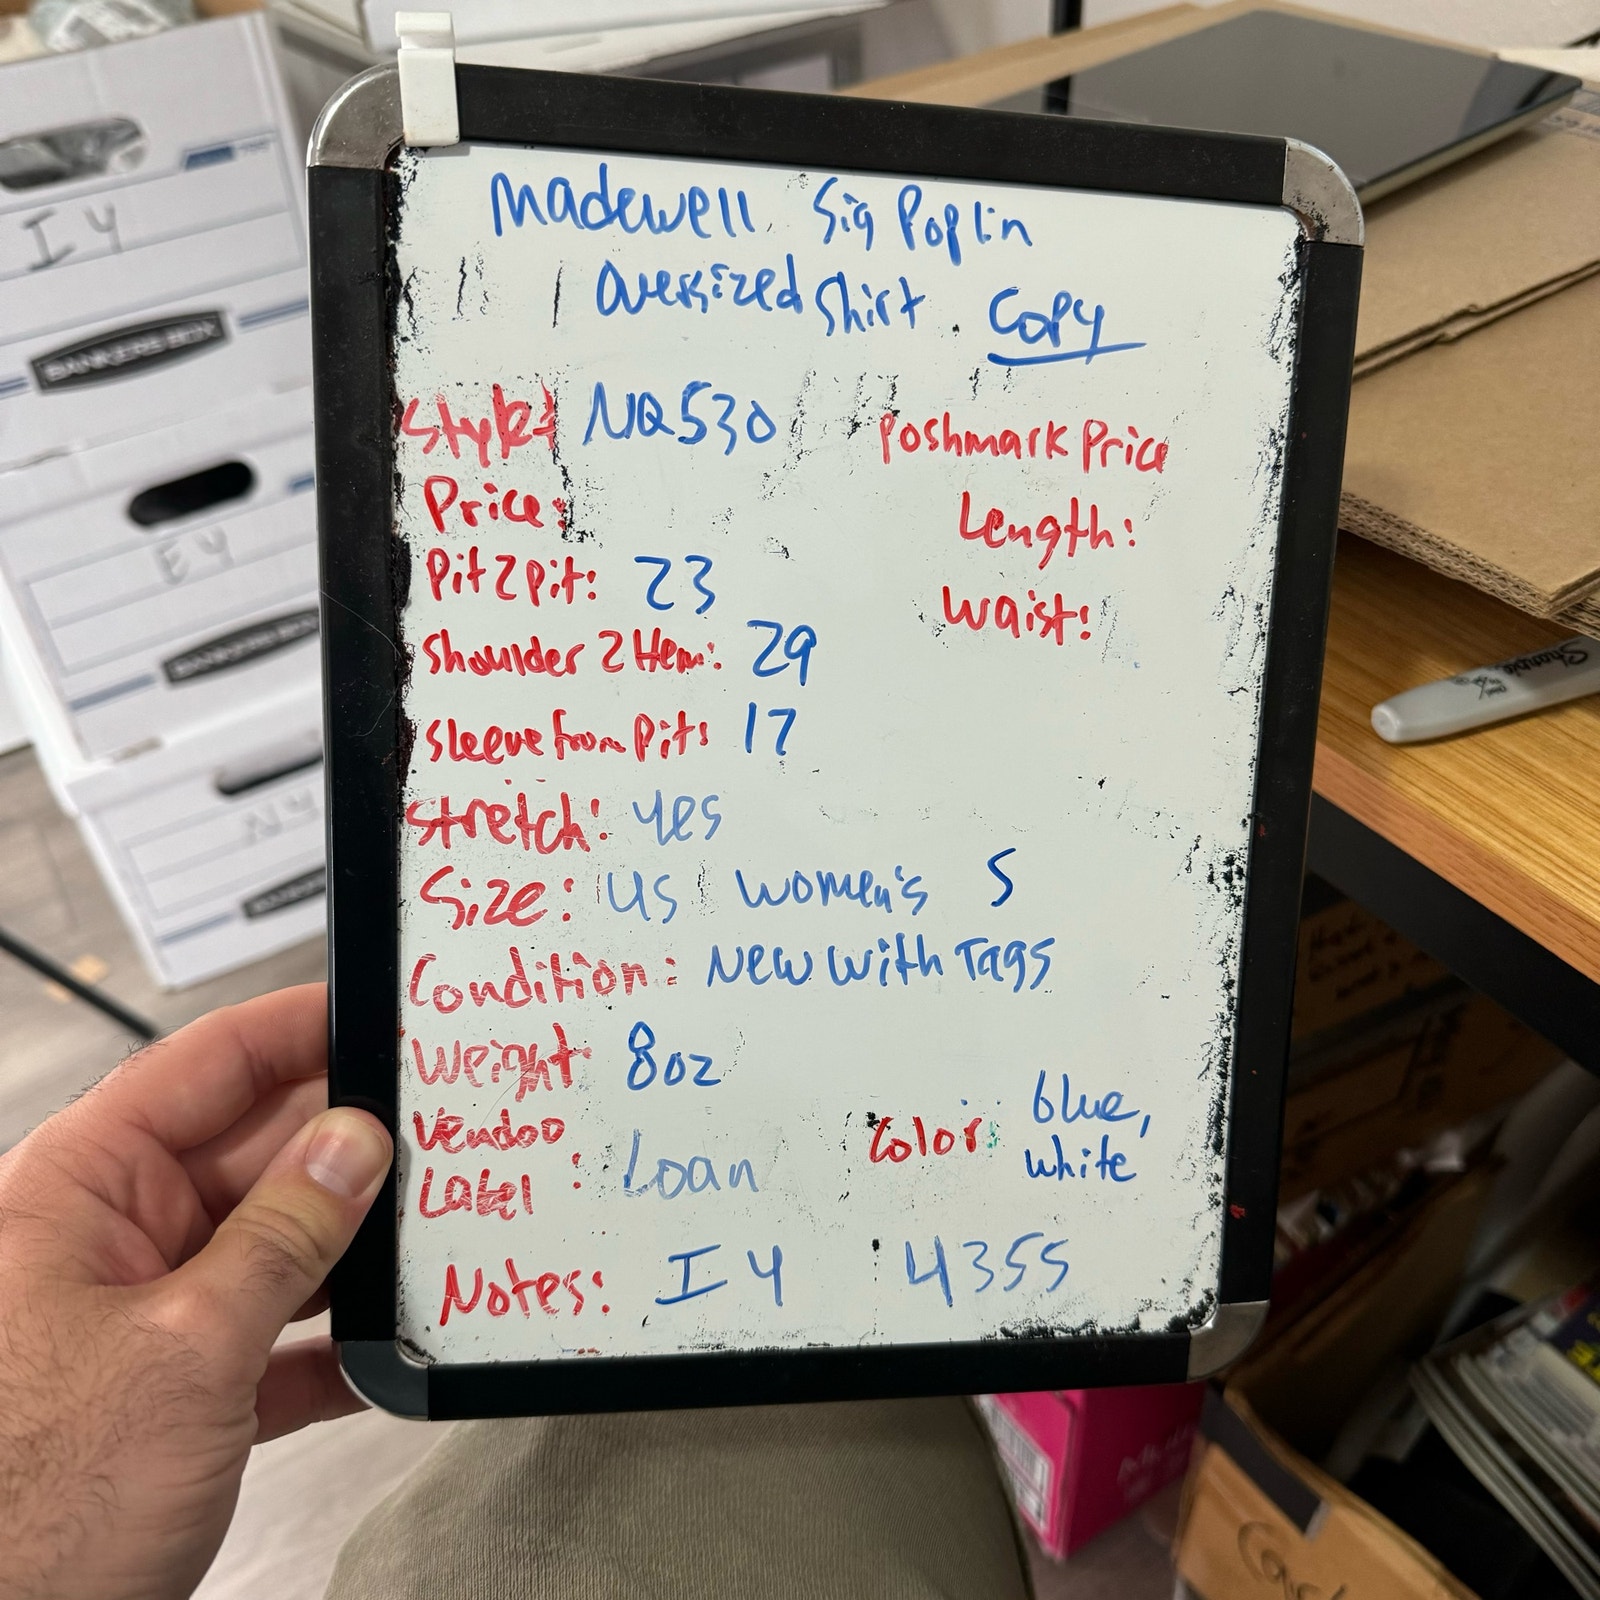 Madewell Sig Poplin
Oversized Shirt. Copy
Style# NQ530
Poshmark Price
Price:
Length:
Pit2pit: 23
Waist:
Shoulder 2 Hem: 29
Sleeve from pit: 17
Stretch: yes
Size: US Women's S
Condition: New with Tags
Weight: 8oz
Vendoo
Label: Loan
Color: blue,
white
Notes: I4 4355
I4
BANKERS BOX
E4
BANKERS BOX
N4
Sharpie